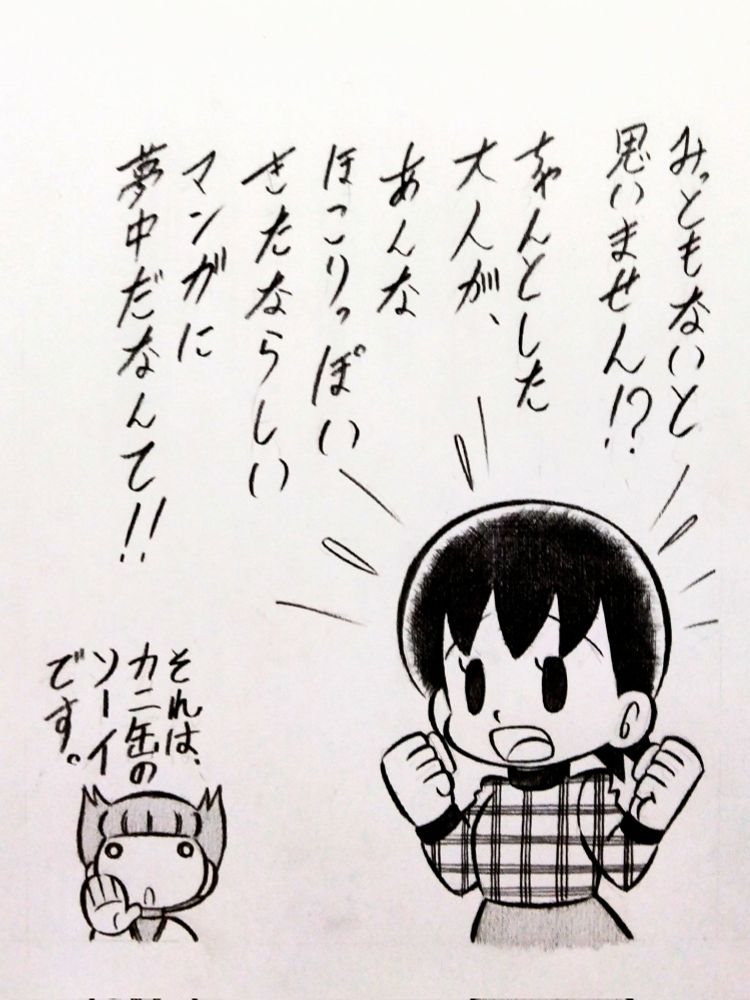 みっともないと
思いません!?
ちゃんとした
大人が、
あんな
ほこりっぽい
きたならしい
マンガに
夢中だなんて!!
それは、
カニ缶の
ソーイ
です。